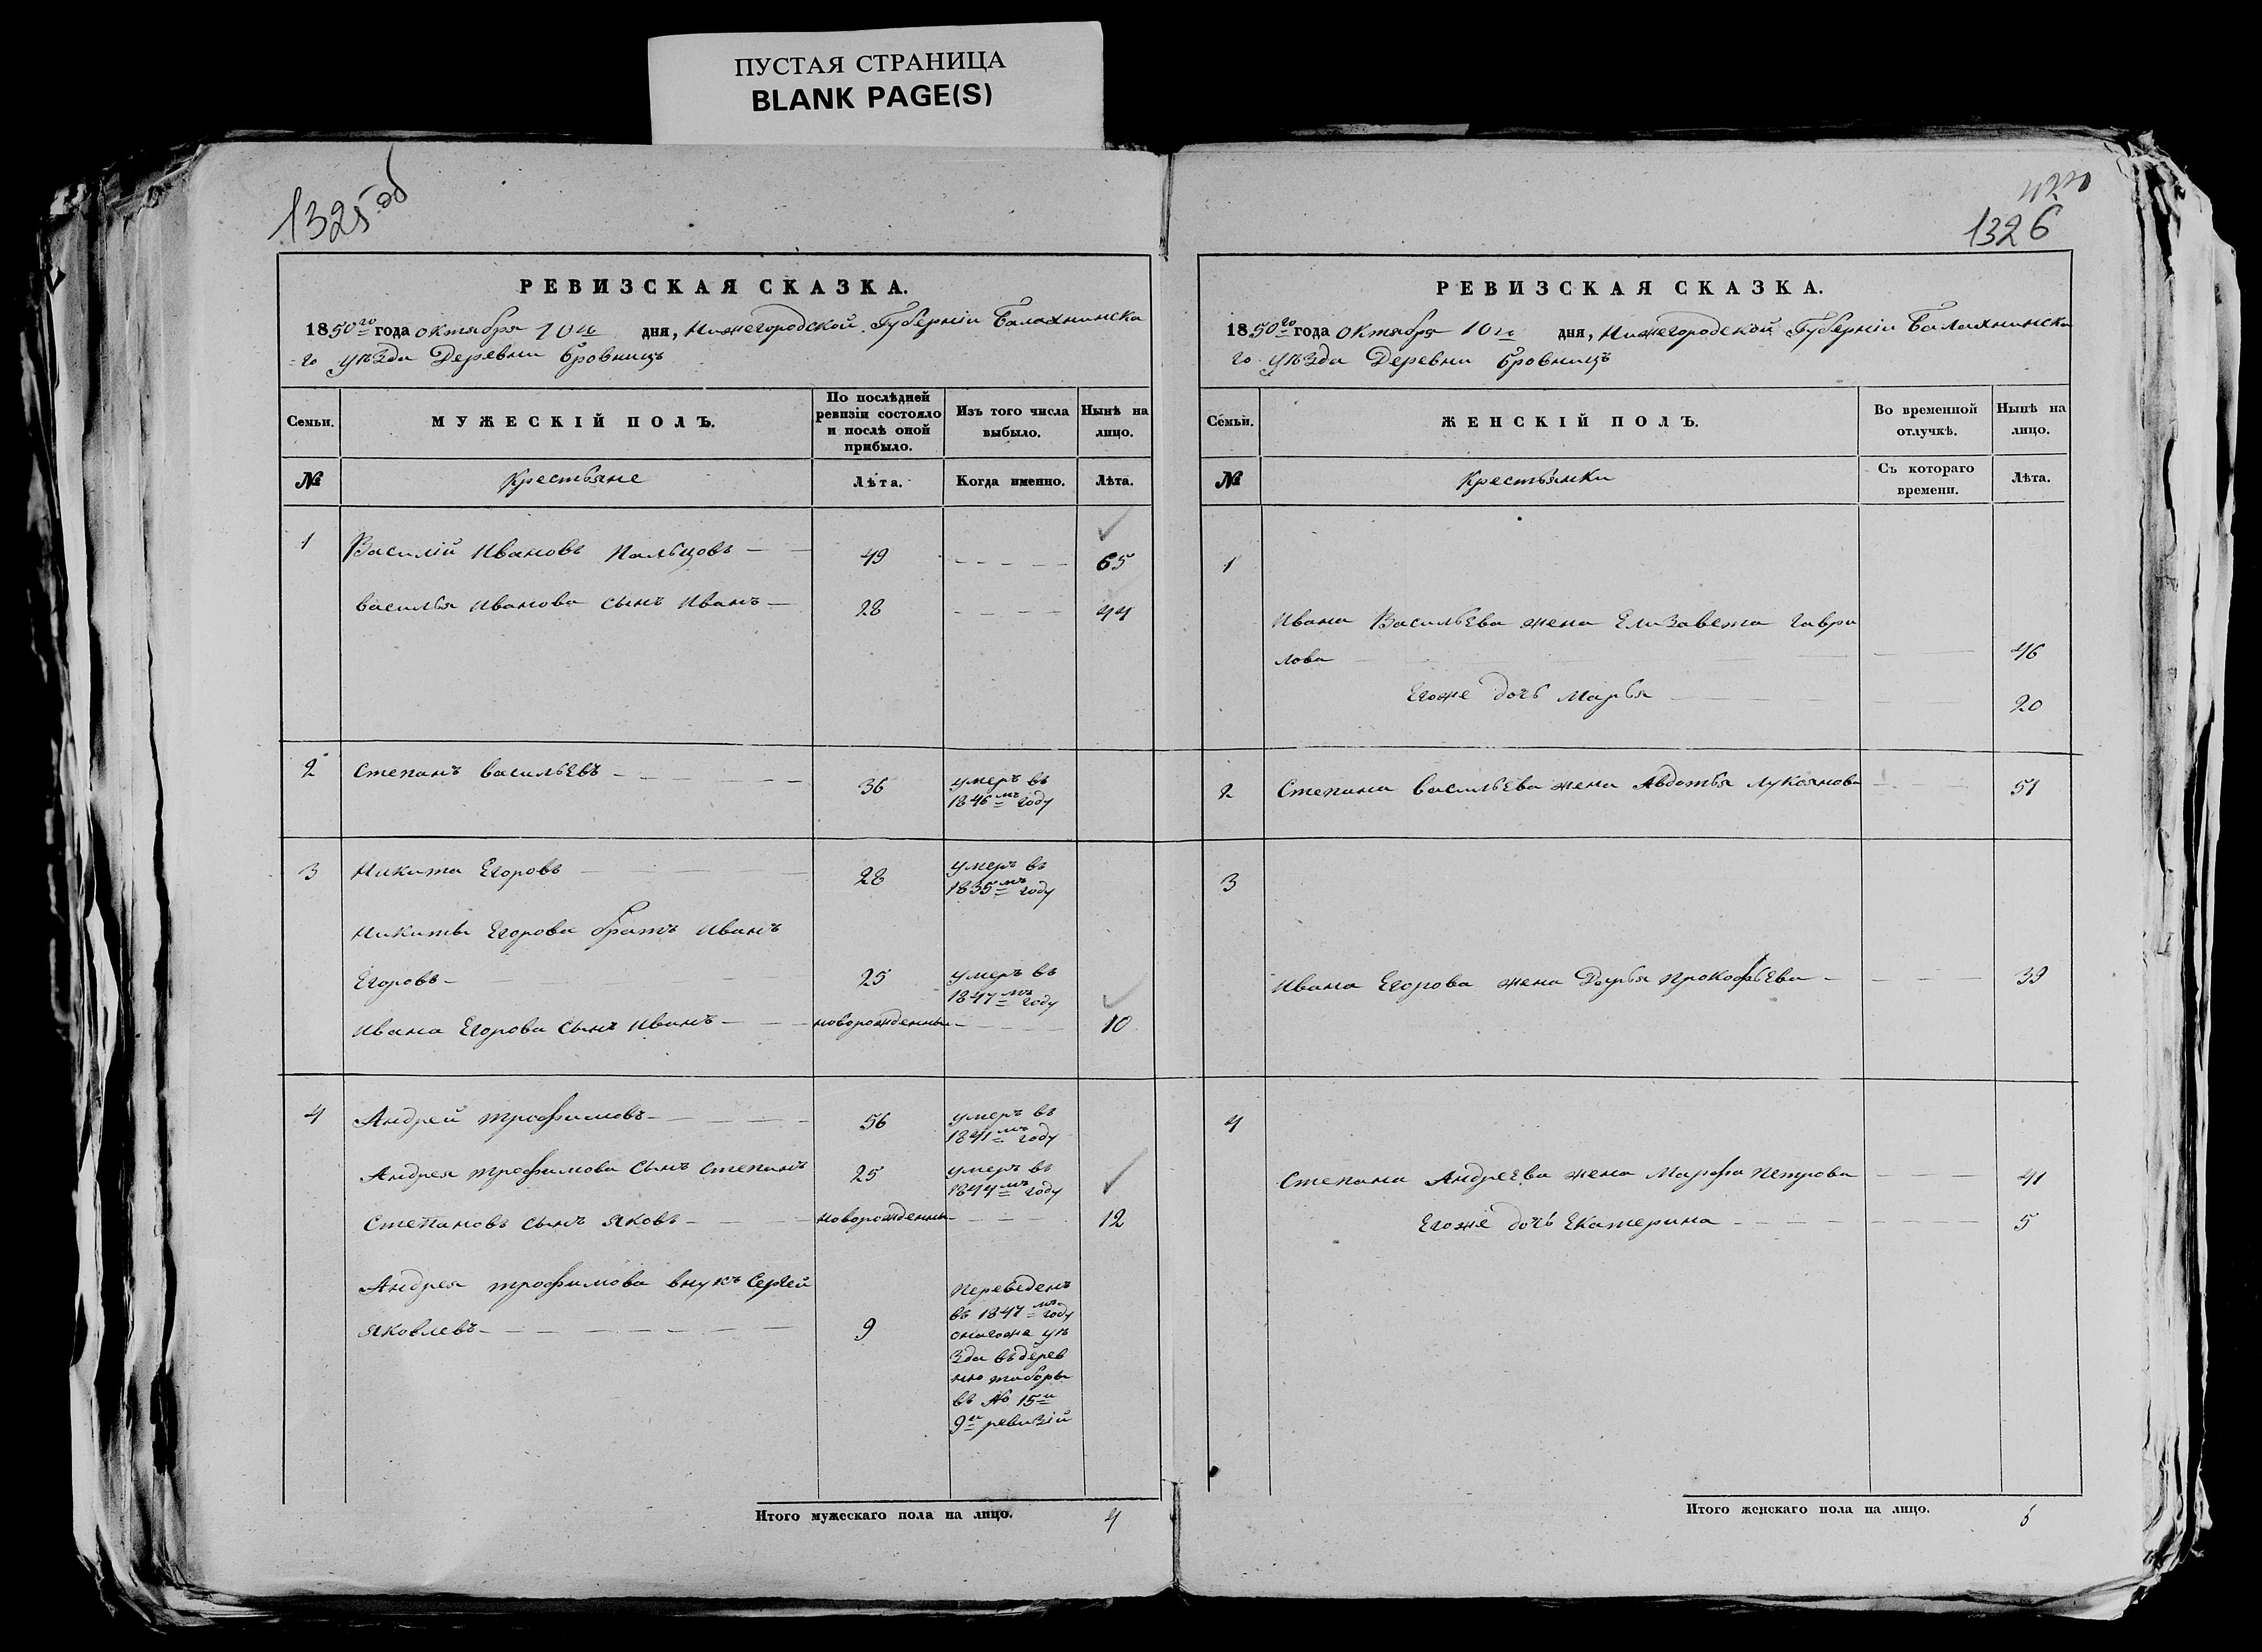 ПУСТАЯ СТРАНИЦА
BLANK PAGE(S)
1325 об
РЕВИЗСКАЯ СКАЗКА.
1850го года октября 10го дня, Нижегородской Губерніи Балахнинска
=го уѣзда Деревни Бровницъ
Семьи.
МУЖЕСКІЙ ПОЛЪ.
По послѣдней ревизіи состояло и послѣ оной прибыло.
Изъ того числа выбыло.
Нынѣ на лицо.
№ Крестьяне Лѣта. Когда именно. Лѣта.
1 Василій Ивановъ Пальцовъ 49 65
Василья Иванова сынъ Иванъ 28 44
2 Степанъ Васильевъ 36 умеръ въ
1846мъ году
3 Никита Егоровъ 28 умеръ въ
1835мъ году
Никиты Егорова братъ Иванъ
Егоровъ 25 умеръ въ
1847мъ году
Ивана Егорова сынъ Иванъ новорожденны 10
4 Андрей Трофимовъ 56 умеръ въ
1841мъ году
Андрея Трофимова сынъ Степанъ 25 умеръ въ
1844мъ году
Степановъ сынъ Яковъ новорожденны 12
Андрея Трофимова внукъ Сергей
Яковлевъ 9
Переведенъ
въ 1847мъ году
онагоже уѣ
зда въ дерев
ню
въ № 15й
9й ревизій
Итого мужескаго пола на лицо. 4
1326
РЕВИЗСКАЯ СКАЗКА.
1850го года Октября 10го дня, Нижегородской Губерніи Балахнинска
го уѣзда Деревни Бровницъ
Семьи.
ЖЕНСКІЙ ПОЛЪ.
Во временной отлучкѣ.
Нынѣ на лицо.
№ Крестьянки Съ котораго времени. Лѣта.
1
Ивана Васильева жена Елизавета Гаври
лова 46
Егоже дочь Марья 20
2 Степана Васильева жена Авдотья Лукоянова 51
3
Ивана Егорова жена Дарья Прокофьева 39
4
Степана Андреева жена Марфа Петрова 41
Егоже дочь Екатерина 5
Итого женскаго пола на лицо. 6